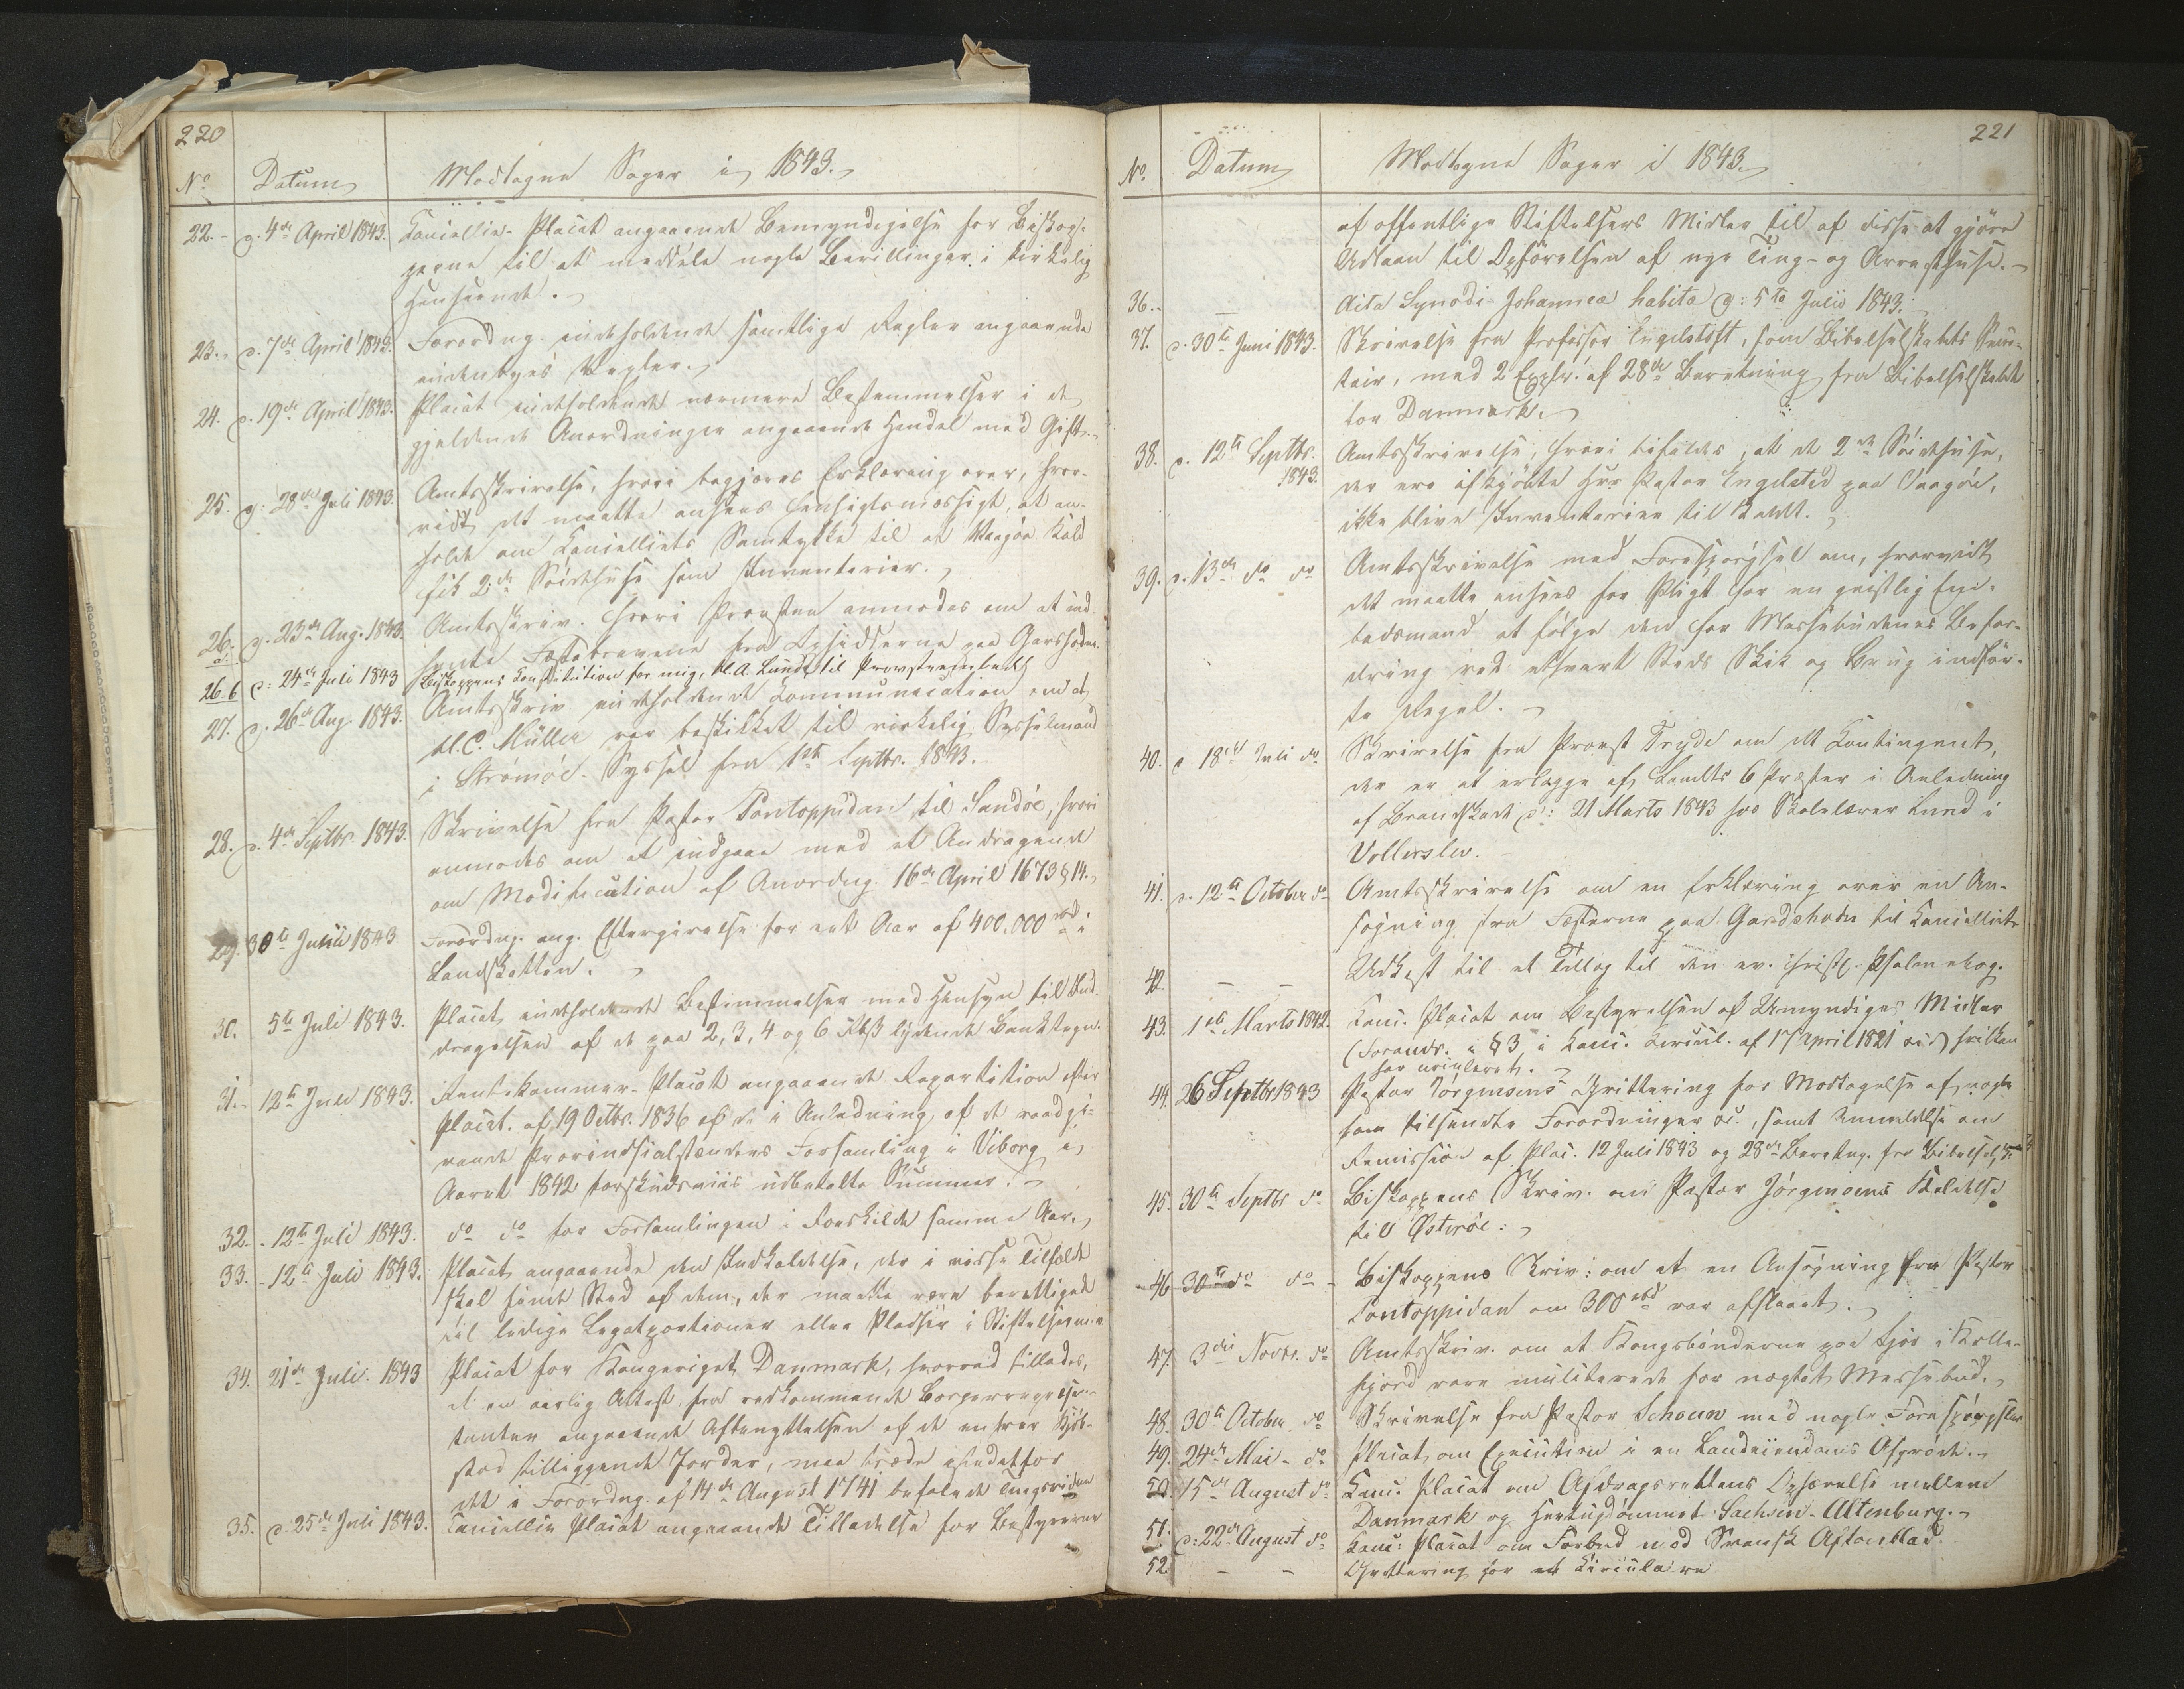 220
No. Datum Modtagne Sager i 1843.
22. d. 4de April 1843. Cancellie-Placat angaaende Bemyndigelse for Biskop-
perne til at meddele nogle Bevillinger i kirkelig
Henseende.
23. d. 7de April 1843. Forordng. indeholdende samtlige Regler angaaende
24. d. 19de April 1843. Placat indeholdende nærmere Bestemmelser i de
gjeldende Anordninger angaaende Handel med Gift.
25. d: 28de Juli 1843. Amtsskrivelse, hvori begjæres Erklæring over, hvor-
vidt det maatte ansees hensigtsmæssigt, at an-
holde om Cancelliets Samtykke til at Vaagøe Kald
fik 2de Söidehuse som Inventarier.
26. a. d. 23de Aug. 1843. Amtsskriv. hvori Provsten anmodes om at ind-
sende Fæstebrevene fra Opsidderne paa Gardshodn.
26. b d: 24de Juli 1843 Biskoppens Constitution for mig, H. A. Lundt, til Provsteembedet
27. d. 26de Aug. 1843. Amtsskriv. indeholdende Communication om at
H. C. Müller var beskikket til virkelig Sysselmand
i Strömöe-Syssel fra 1ste Septbr. 1843.
28. d. 4de Septbr. 1843. Skrivelse fra Pastor Pontoppidan til Sandöe, hvori
anmodes om at indgaae med et Andragende
om Modification af Anordng. 16de April 1673 § 14.
29. 30te Junii 1843. Forordng. ang. Eftergivelse for eet Aar af 400.000 rbd i
Landskatten.
30. 5te Juli 1843. Placat, indeholdende Bestemmelser med Hensyn til Ind-
dragelsen af de paa 2, 3, 4 og 6 Rbß lydende Banktegn.
31. 12te Juli 1843. Rentekammer-Placat angaaende Repartition efter
Placat. af 19 Octbr. 1836 af de i Anledning af de raadgi-
vende Provindsialstænders Forsamling i Viborg i
Aaret 1842 forskudsviis udbetalte Summer.
32. - 12te Juli 1843. do do for Forsamlingen i Roeskilde samme Aar.
33. - 12te Juli 1843. Placat, angaaende den Indkaldelse, der i visse Tilfælde
skal finde Sted af dem, der maatte være berettigede
til ledige Legatportioner eller Pladser i Stiftelserne
34. 21de Juli. 1843 Placat for Kongeriget Danmark, hvorved tillades,
at en aarlig Attest fra vedkommende Borgerrepræsen-
tanter angaaende Afbenyttelsen af de enhver Kjöb-
stad tilliggende Jorder, maa træde istedetfor
det i Forordng. af 14de August 1741 befalede Tingsvidne
35. d. 25de Juli 1843. Cancellie Placat angaaende Tilladelse for Bestyrerne
221
No. Datum Modtagne Sager i 1843.
af offentlige Stiftelsers Midler til af disse at gjöre
Udlaan til Opförelsen af nye Ting- og Arresthuse.
36. - Acta Synodi-Johannea habita d: 5te Julii 1843.
37. d. 30te Juni 1843. Skrivelse fra Professor Engelstoft, som Bibelselskabets Secre-
tair, med 2 Explr. af 28de Beretning fra Bibelselskabet
for Danmark.
38. d. 12te Septbr. 1843. Amtsskrivelse, hvori bifaldes, at de 2de Söidehuse,
der ere afkjöbte Hr. Pastor Engelsted paa Vaagöe,
ikke blive Inventarier til Kaldet.
39. d. 13de do do Amtsskrivelse med Forespörgsel om, hvorvidt
det maatte ansees for Pligt for en geistlig Em-
bedsmand at fölge den for Messebudenes Befor-
dring ved ethvert Steds Skik og Brug indför-
te Regel.
40. d 18de Juli do Skrivelse fra Provst Tryde om det Contingent,
der er at erlægge af Landets 6 Præster i Anledning
af Brandskade d: 21 Marts 1843 hos Skolelærer Lund i
Vollerslev.
41. d. 12te October do Amtsskrivelse om en Erklæring over en An-
sögning fra Fæsterne paa Gardshodn til Cancelliet
42. - - Udkast til et Tillæg til den ev. christl. Psalmebog.
43. 1ste Marts 1842. Canc. Placat om Bestyrelsen af Umyndiges Midler
(Forandr. i § 3 i Canc. Circul. af 17 April 1821 hvilken
har circuleret.
44. 26 Septbr 1843 Pastor Jörgensens Qvittering for Modtagelse af nogle
ham tilsendte Forordninger &c., samt Anmeldelse om
Remission af Plac. 12 Juli 1843 og 28de Beretng. fra Bibelselsk.
45. 30te Septbr do Biskoppens Skriv. om Pastor Jörgensens Kaldelse
til Østeröe.
46 30te do do - Biskoppens Skriv: om at en Ansøgning fra Pastor
Pontoppidan om 300 rbd var afslaaet.
47. 3die Novbr. do Amtsskriv. om at Kongsbönderne paa Ejde i Kolle-
fjord vare mulcterede for nægtet Messebud.
48. 30te October do Skrivelse fra Pastor Schoun med nogle Forespörgsler
49. 24de Mai - do Placat, om Execution i en Landeiendoms Afgröde.
50. 15de August do Canc. Placat om Afdragsrettens Ophævelse mellem
Danmark og Hertugdömmet Sachsen-Altenburg.
51. d: 22de August do Canc: Placat om Forbud mod Svensk Aftonblad.
52. - - Qvittering for et Circulaire